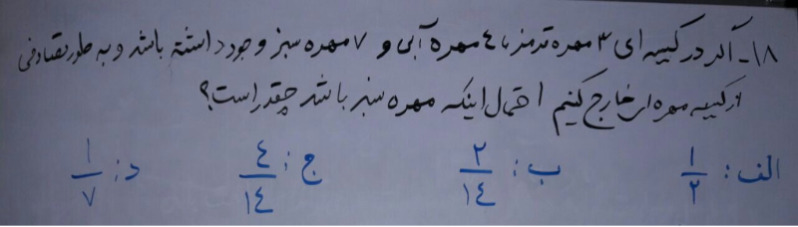 ۱۸- اگر در کیسه ای ۳ مهره قرمز، ٤ مهره آبی و ۷ مهره سبز وجود داشته باشد و به طور تصادفی
از کیسه مهره ای خارج کنیم احتمال اینکه مهره سبز باشد چقدر است؟
الف: ۱/۲ ب: ۲/۱٤ ج: ٤/۱٤ د: ۱/۷